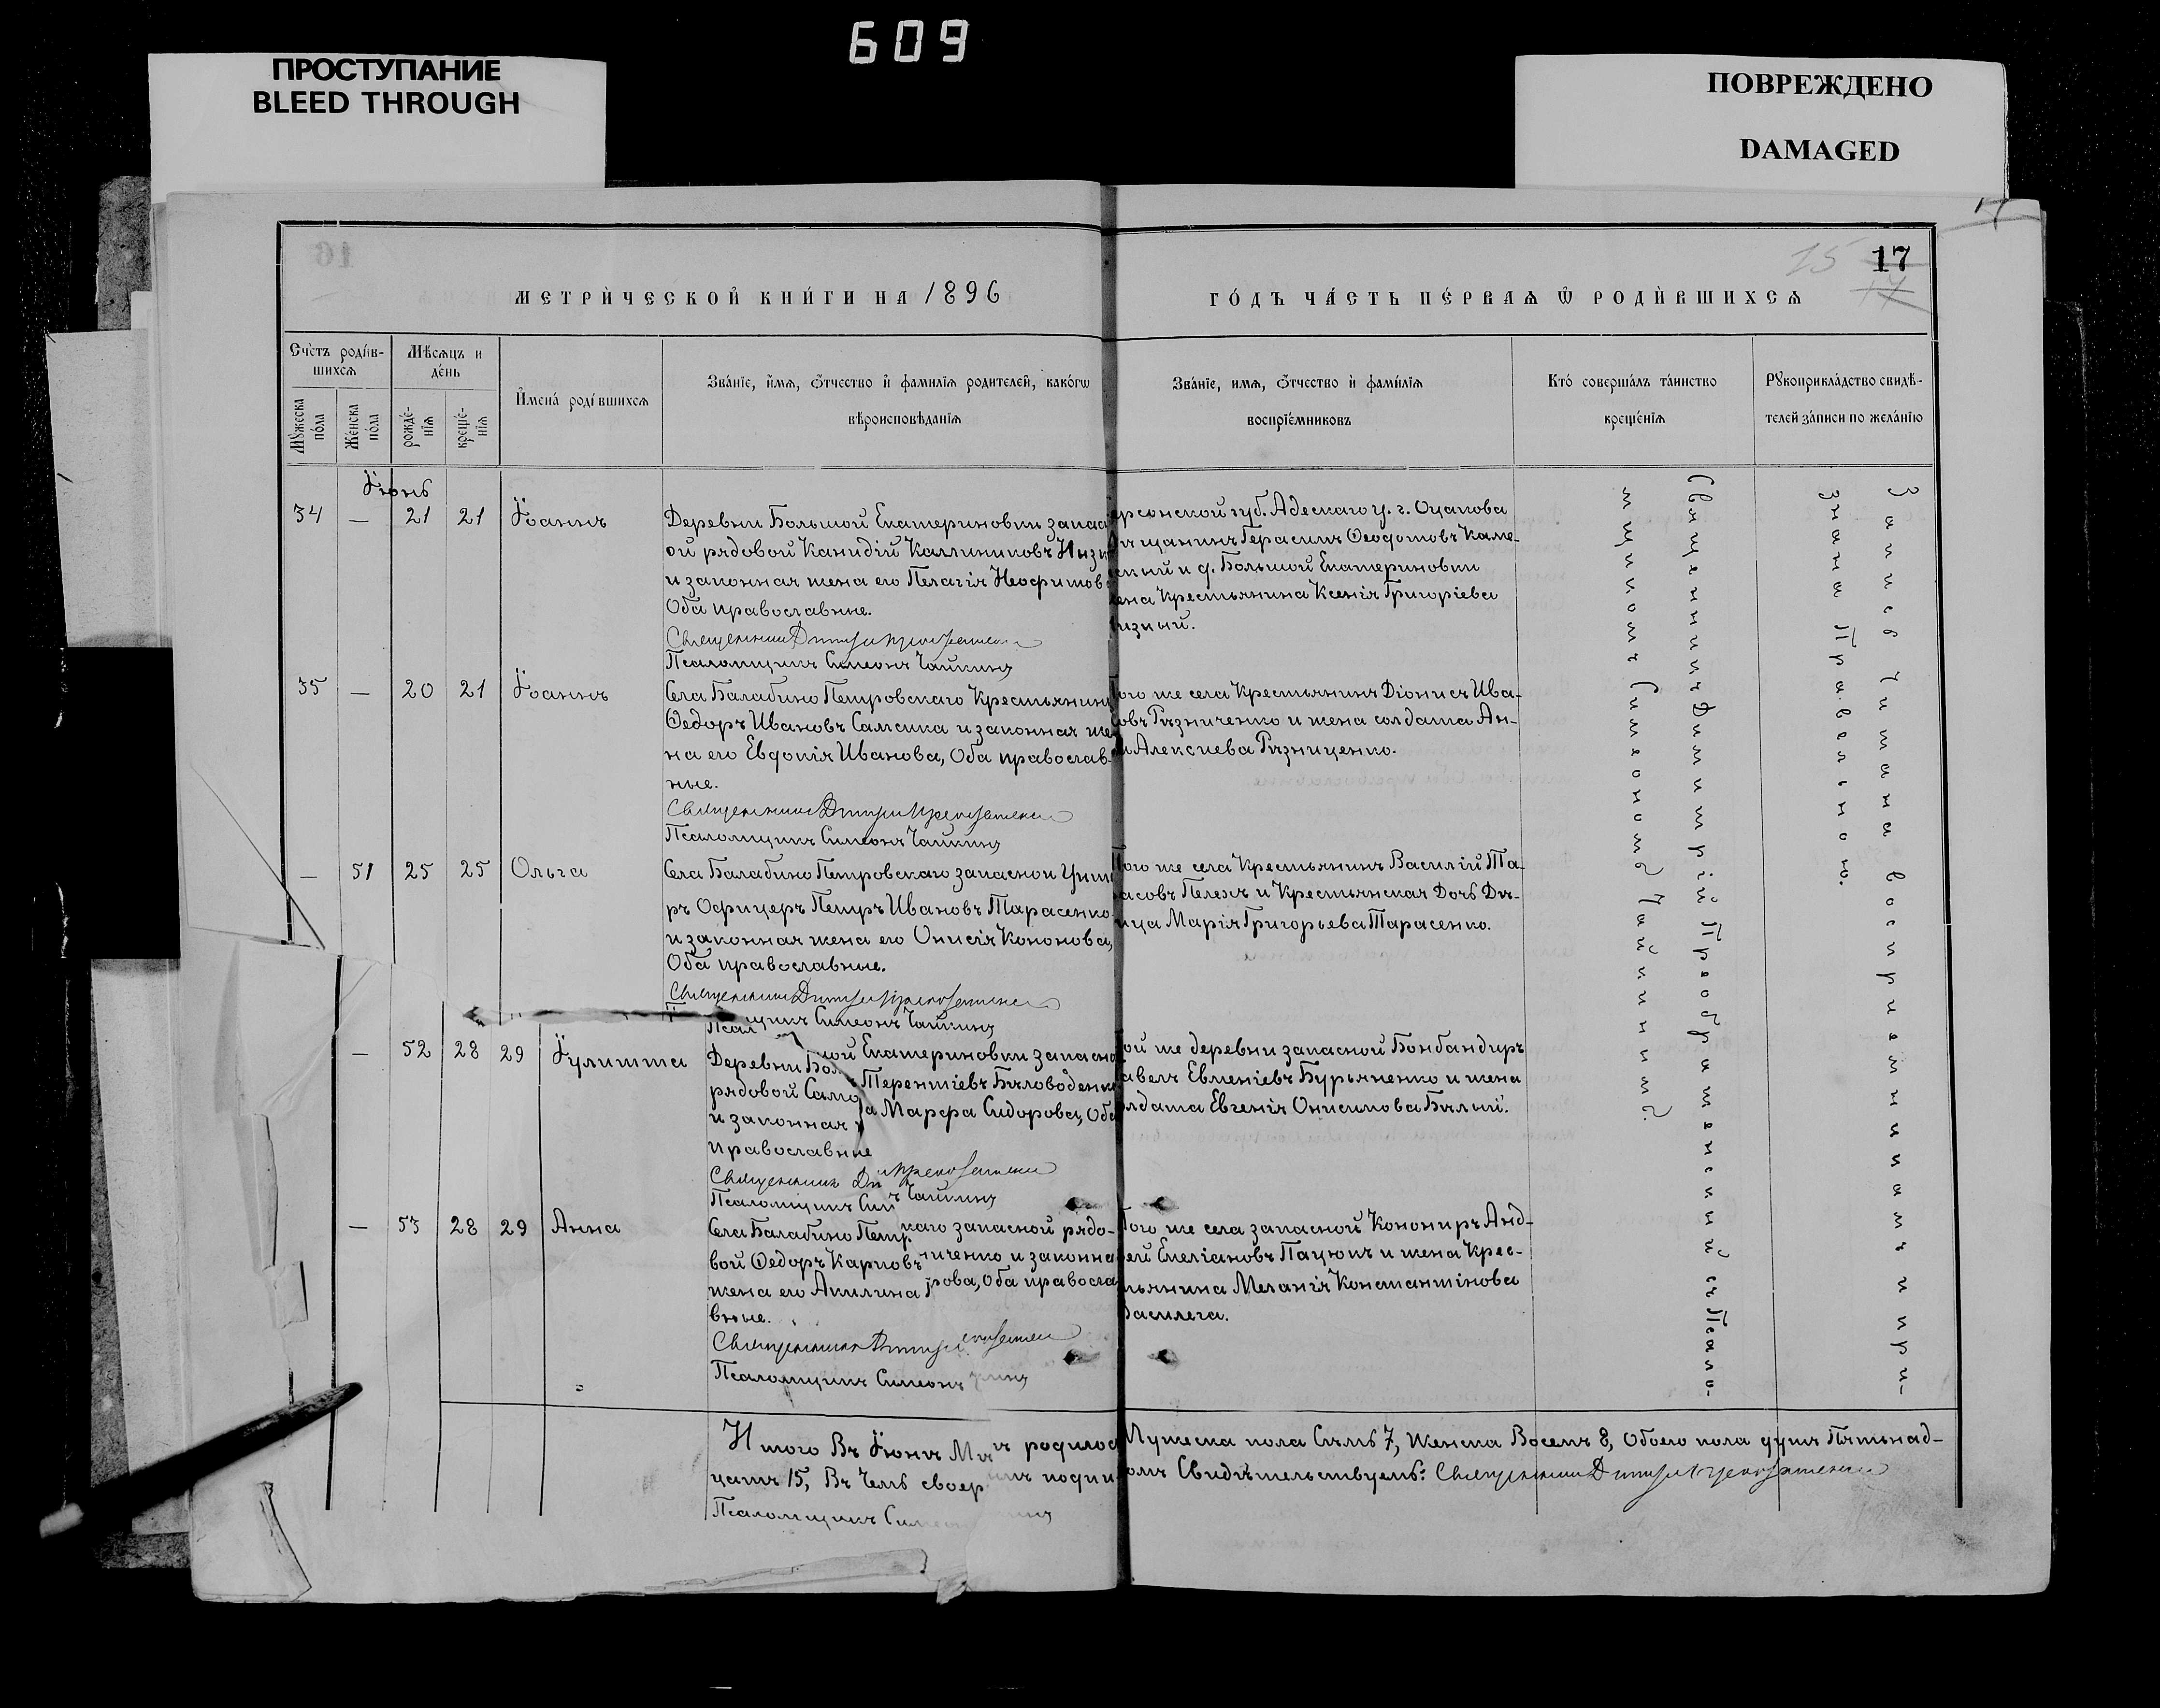 609
ПРОСТУПАНИЕ
BLEED THROUGH
ПОВРЕЖДЕНО
DAMAGED
15 17
МЕТРИЧЕСКОЙ КНИГИ НА 1896
ГОДЪ ЧАСТЬ ПЕРВАЯ Ѡ РОДИВШИХСЯ
Счетъ родив-
шихся
Мужеска пола
Женска пола
Мѣсяцъ и
день
рожде-
нія
креще-
нія
Имена родившихся
Званіе, имя, отчество и фамилія родителей, какогѡ
вѣроисповѣданія
Званіе, имя, отчество и фамилія
воспріемниковъ
Кто совершалъ таинство
крещенія
Рукоприкладство свидѣ-
телей записи по желанію
Іюнь
34 — 21 21 Іоаннъ
Деревни Большой Екатериновки запасн
ой рядовой Канидій Каллиниковъ
и законная жена его Пелагія Неофитов
Оба православные.
Священникъ Димитрій Преображенскій
Псаломщикъ Симеонъ Чайкинъ
ерсонской губ. Адескаго у. г. Очакова
ѣщанинъ Герасимъ Ѳеодотовъ Каме-
скый и д. Большой Екатериновки
ена Крестьянина Ксенія Григоріева
изный.
35 — 20 21 Іоаннъ
Села Балабино Петровскаго Крестьянинъ
Ѳедоръ Ивановъ Самсика и законная же
на его Евдокія Иванова, Оба православ-
ные.
Священникъ Димитрій Преображенскій
Псаломщикъ Симеонъ Чайкинъ
Того же села Крестьянинъ Діонисъ Ива-
новъ Рѣзниченко и жена солдата Ан-
на Алексиева Рѣзниценко.
— 51 25 25 Ольга
Села Балабино Петровскаго запасной Унте
ръ Офицеръ Петръ Ивановъ Тарасенко
и законная жена его Онисія Кононова,
Оба православные.
Священникъ Димитрій Преображенскій
Псаломщикъ Симеонъ Чайкинъ
Того же села Крестьянинъ Василій Та-
расовъ Пелехъ и Крестьянская Дочь Дѣ-
вица Марія Григорьева Тарасенко.
— 52 28 29 Іулитта
Деревни Большой Екатериновки запасно
рядовой Само Терентіевъ Бѣловоденко
и законная а Марфа Сидорова, Оба
православные
Священникъ Ди Преображенскій
Псаломщикъ Сим Чайкинъ
ой же деревни запасной Бонбандиръ
авелъ Евменіевъ Бурьяненко и жена
олдата Евгенія Онисимова Бѣлый.
— 53 28 29 Анна
Села Балабино Петр каго запасной рядо-
вой Ѳедоръ Карповъ ниченко и законна
жена его Акилина рова, Оба правосла
вные.
Священникъ Димитрій Преображенскій
Псаломщикъ Симеонъ
Того же села запасной Кононир Анд-
рей Емеліановъ Пацюкъ и жена Крес-
тьянина Меланія Константінова
Василега.
Священникъ Димитрій Преображенскій съ Псало-
мщикомъ Симеономъ Чайкинымъ.
Запись читана воспріемникамъ и при-
знана Правильною.
Итого Въ Іюнѣ Мѣ ѣ родилос Мужеска пола Семь 7, Женска Восемъ 8, Обоего пола душъ Пятьнад-
цать 15, Въ Чемъ своер имъ подпи омъ Свидѣтельствуемъ: Священникъ Димитрій Преображенскій
Псаломщикъ Симеонъ